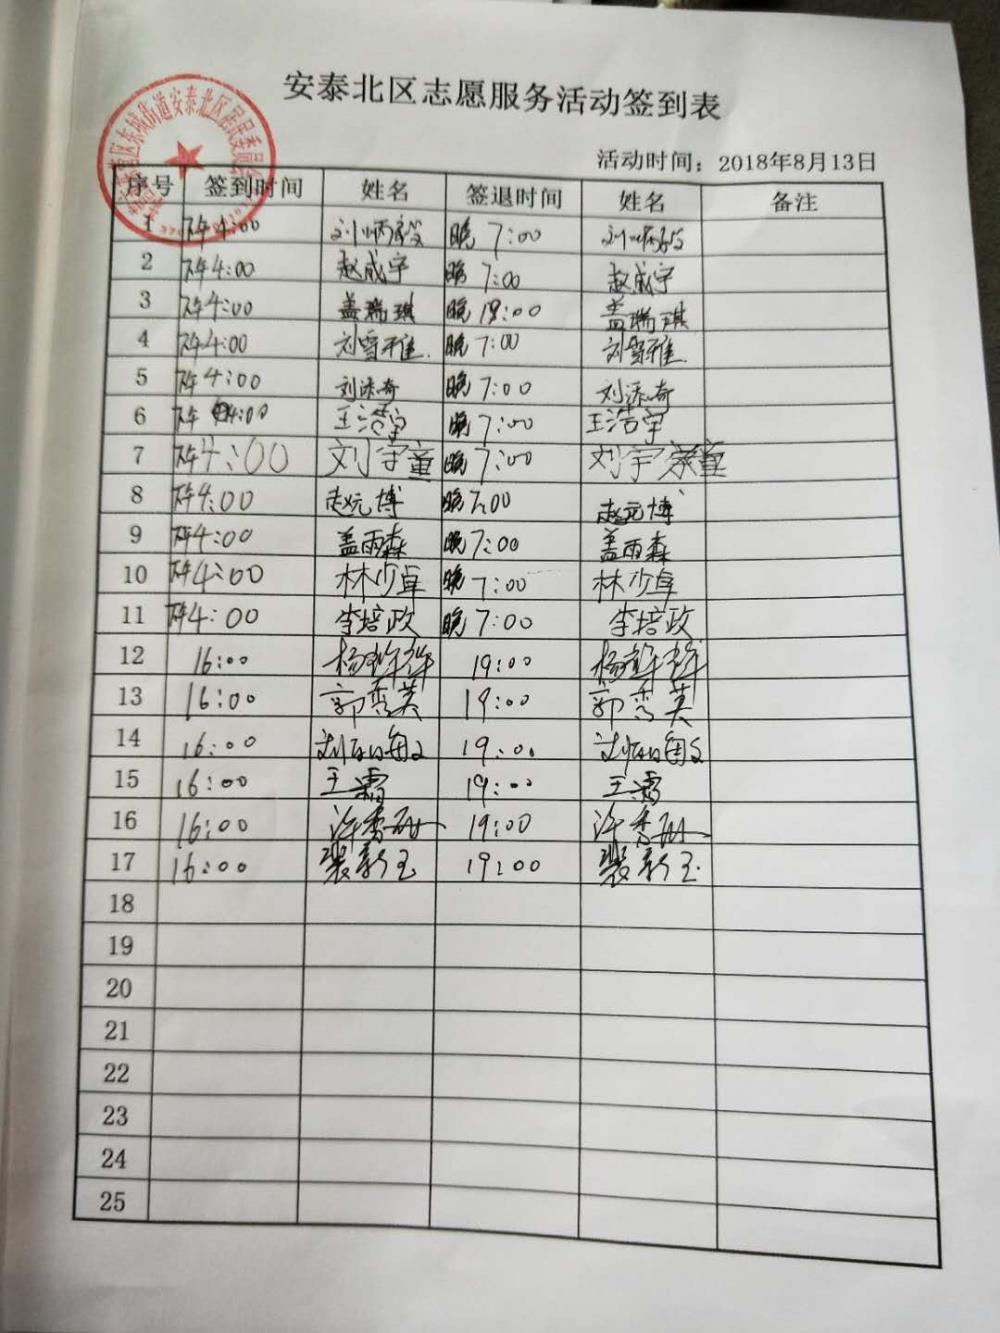 安泰北区志愿服务活动签到表
活动时间：2018年8月13日
序号 签到时间 姓名 签退时间 姓名 备注
1 下午4:00 刘炳毅 晚7:00 刘炳毅
2 下午4:00 赵威宇 晚7:00 赵威宇
3 下午4:00 盖瑞琪 晚19:00 盖瑞琪
4 下午4:00 刘雪雅 晚7:00 刘雪雅
5 下午4:00 刘添奇 晚7:00 刘添奇
6 下午4:00 王浩宇 晚7:00 王浩宇
7 下午4:00 刘宇童 晚7:00 刘宇童
8 下午4:00 赵元博 晚7:00 赵元博
9 下午4:00 盖雨森 晚7:00 盖雨森
10 下午4:00 林少卓 晚7:00 林少卓
11 下午4:00 李培政 晚7:00 李培政
12 16:00 19:00
13 16:00 郭秀英 19:00 郭秀英
14 16:00 19:00
15 16:00 王霜 19:00 王霜
16 16:00 许秀 19:00 许秀
17 16:00 裴新玉 19:00 裴新玉
18
19
20
21
22
23
24
25